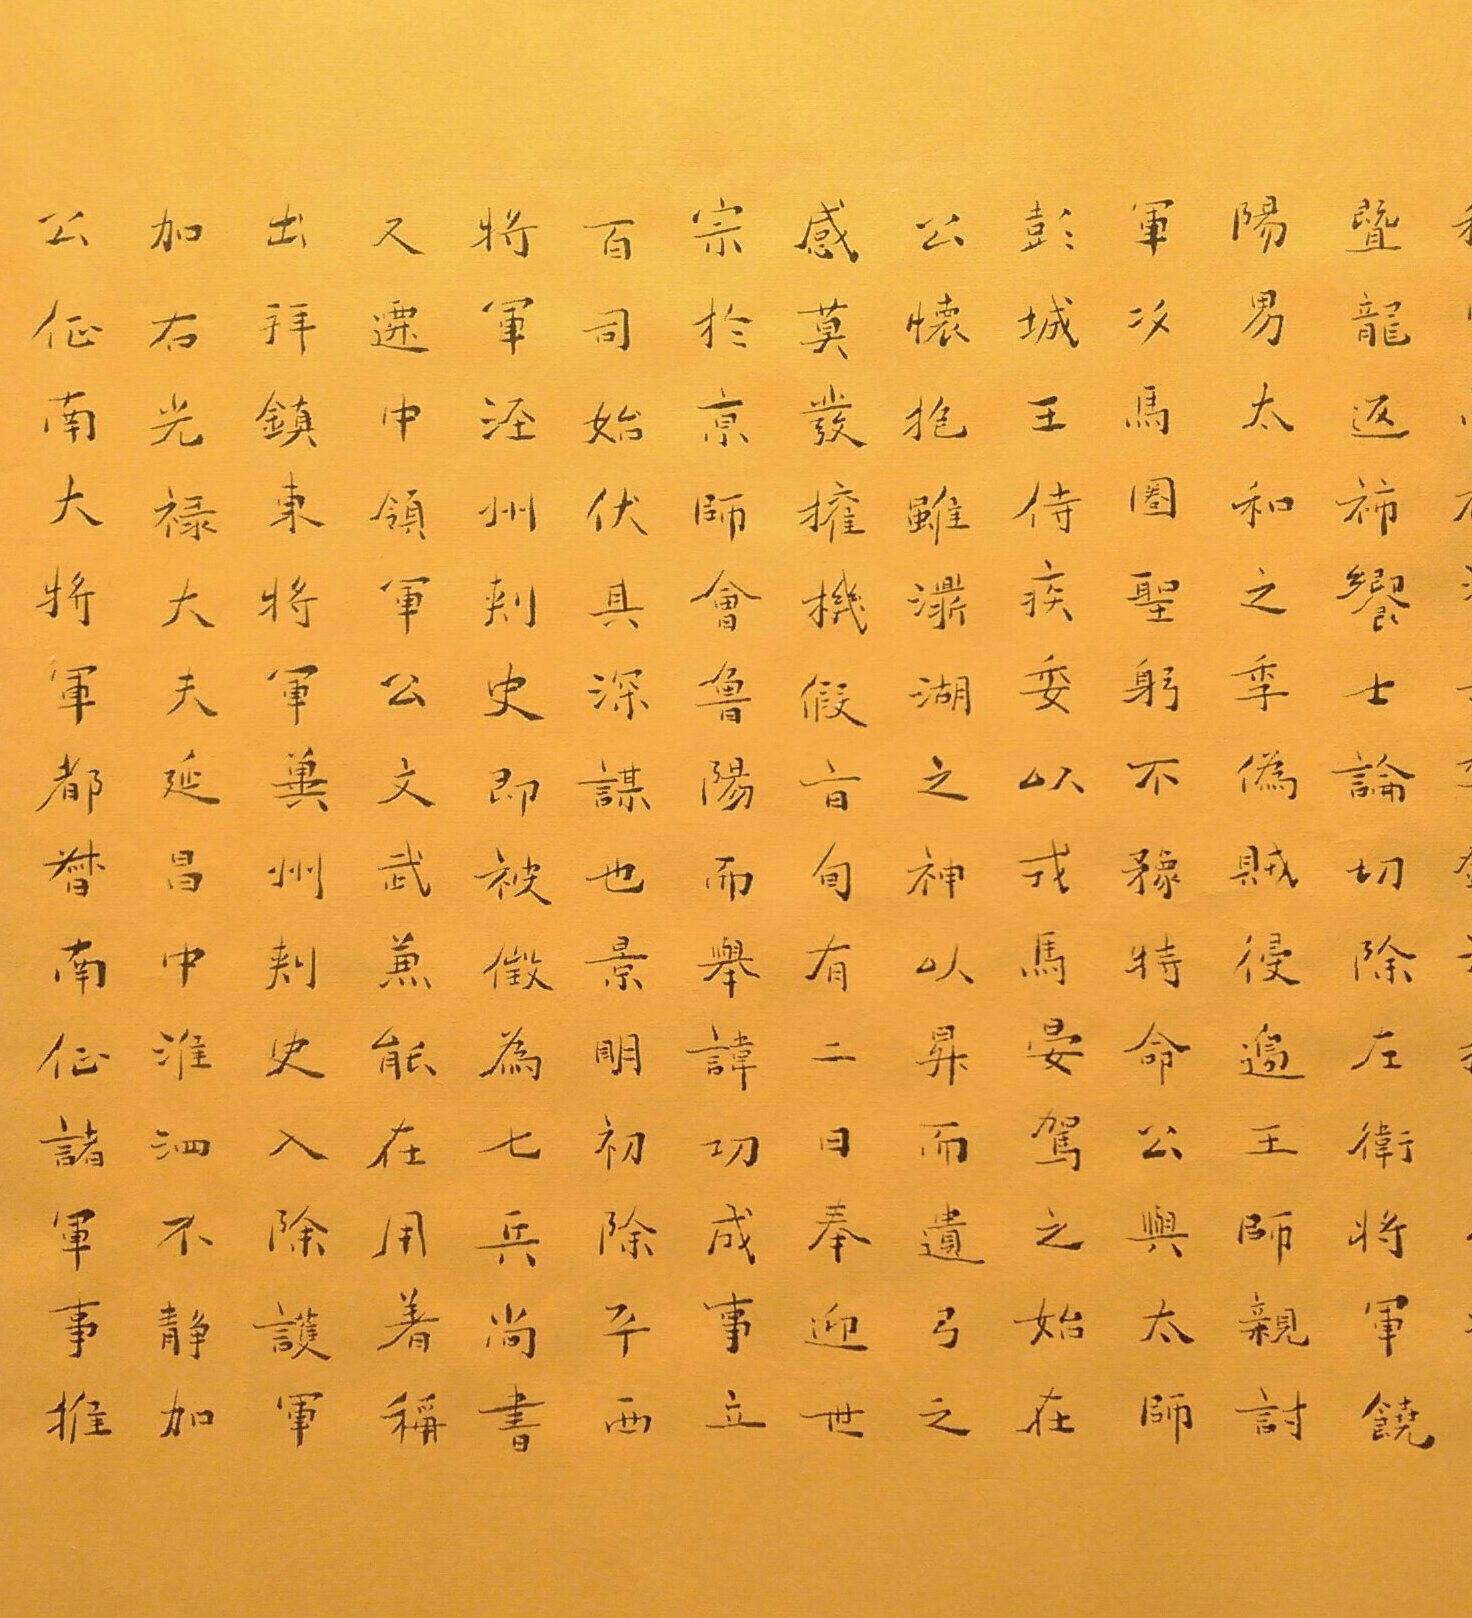 暨龍返祏饗士論切除左衛將軍饒
陽男太和之季偽賊侵邊王師親討
軍次馬圈聖躬不豫特命公與太師
彭城王侍疾委以戎馬晏駕之始在
公懷抱雖鼎湖之神以昇而遺弓之
感莫發擁機假旨旬有二日奉迎世
宗於京師會魯陽而舉諱功成事立
百司始伏其深謀也景明初除平西
將軍涇州刺史即被徵為七兵尚書
又遷中領軍公文武兼能在用著稱
出拜鎮東將軍冀州刺史入除護軍
加右光祿大夫延昌中淮泗不靜加
公征南大將軍都督南征諸軍事推